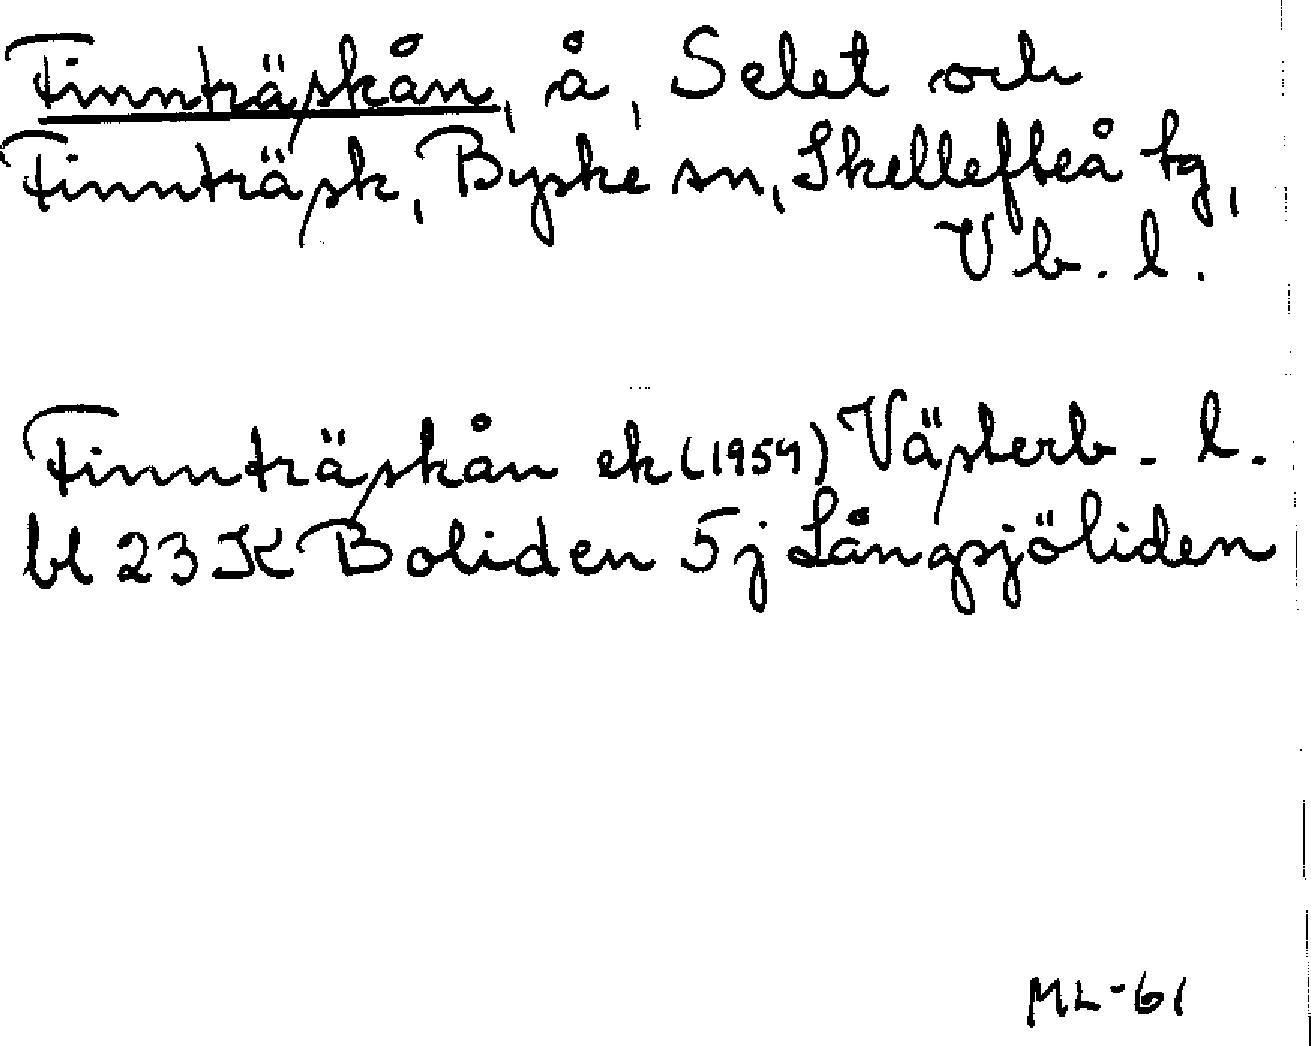 Finnträskån, å, Selet och
Finnträsk, Byske sn, Skellefteå tg,
Vb. l.
Finnträskån ek (1954) Västerb. l.
bl 23 K Boliden 5j Långsjöliden
ML-61